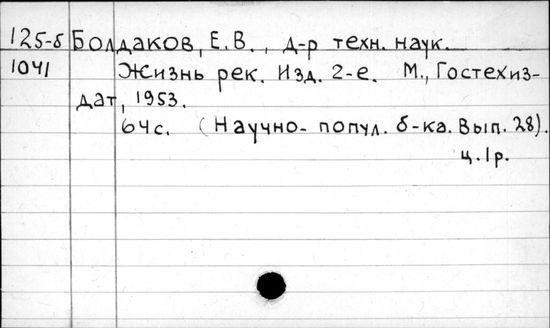 125-5 Болдаков, Е.В., д-р техн. наук.
1041 Жизнь рек. Изд. 2-е. М., Гостехиз-
дат, 1953.
64с. (Научно- попул. б-ка. Вып. 28).
ц.1р.